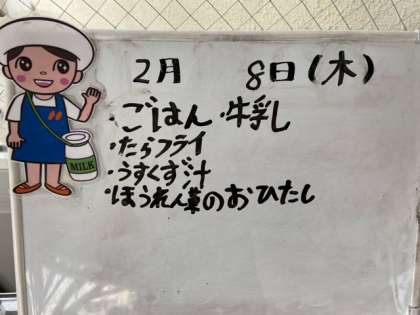 2月 8日(木)
・ごはん ・牛乳
・たらフライ
・うすくず汁
・ほうれん草のおひたし
MILK